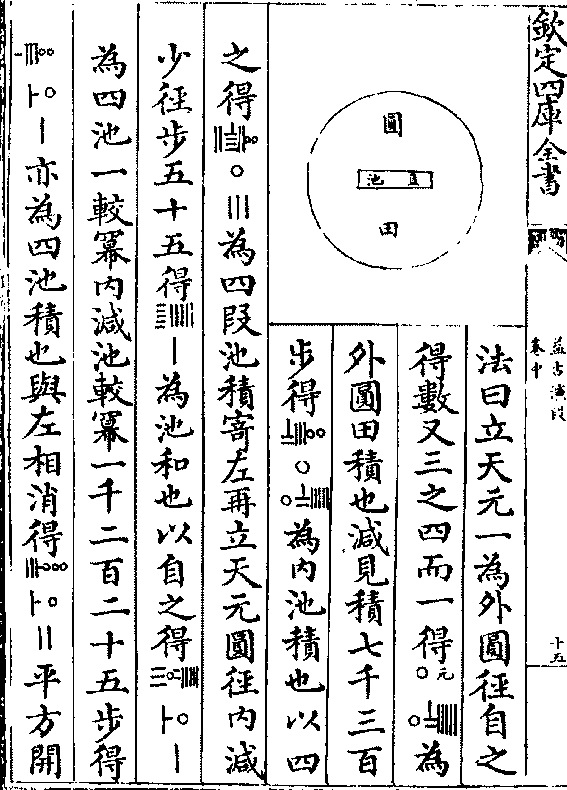 欽定四庫全書
益古演段
卷中
十五
法曰立天元一為外圓徑自之
得數又三之四而一得〇元〇為
外圓田積也減見積七千三百
步得〇〇為內池積也以四
圓
直池
田
之得〇〣為四段池積寄左再立天元圓徑內減
少徑步五十五得〡為池和也以自之得〡
為四池一較冪內減池較冪一千二百二十五步得
〡亦為四池積也與左相消得〢平方開